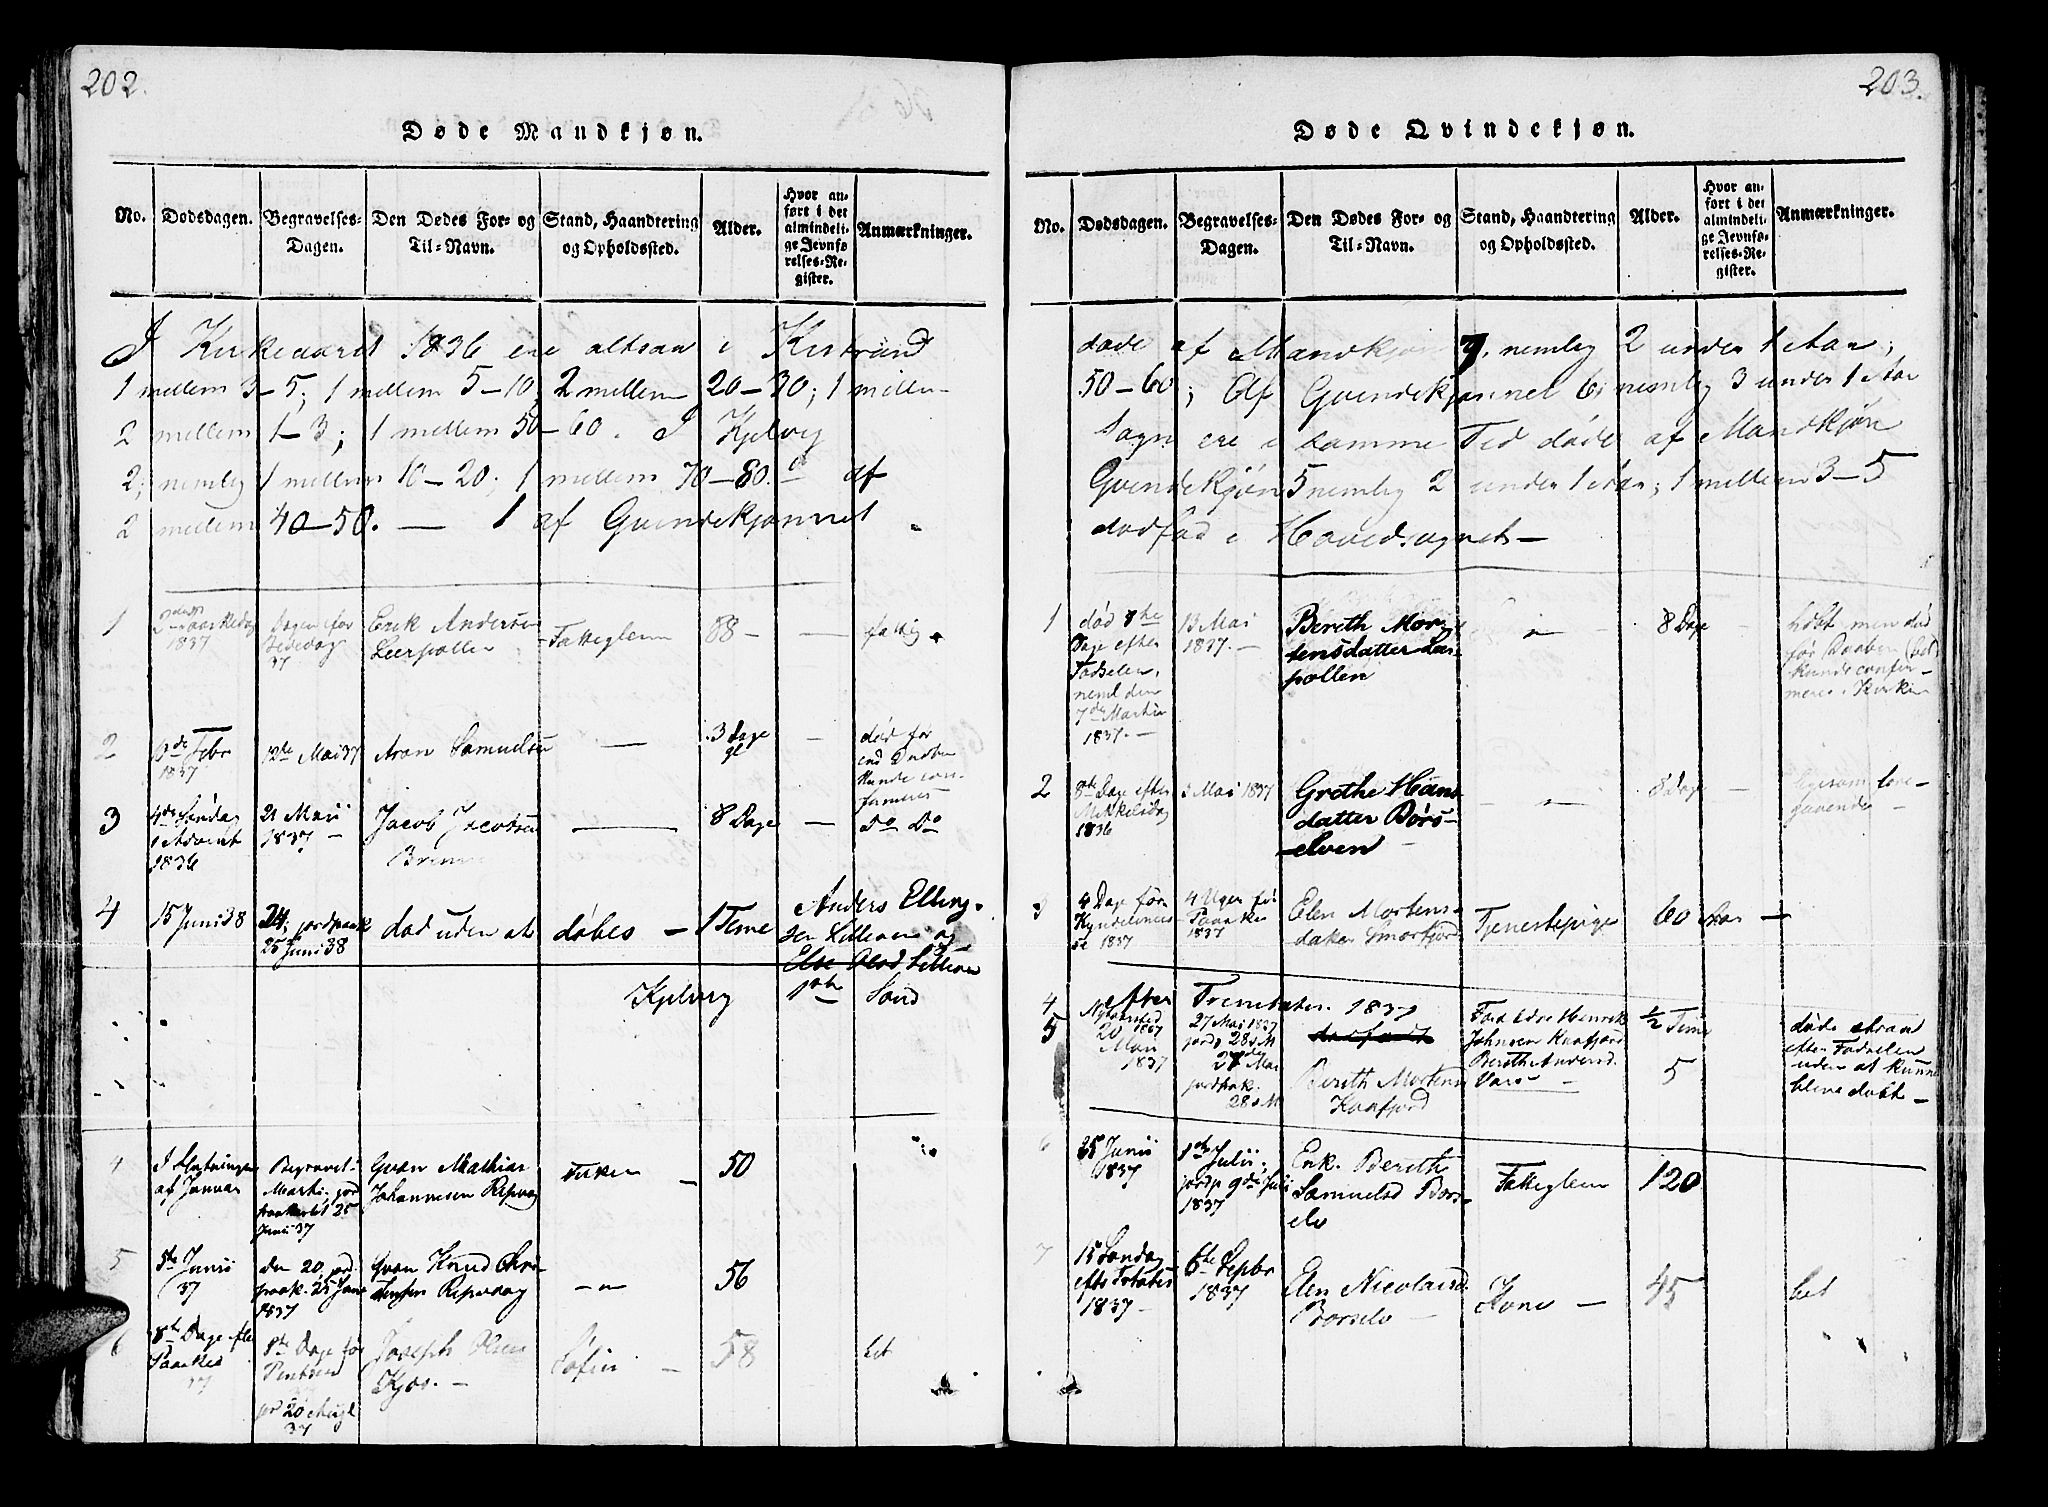 202.
Døde Mandkjøn.
No.
Dødsdagen.
Begravelses-
Dagen.
Den Dødes For- og
Til-Navn.
Stand, Haandtering
og Opholdssted.
Alder.
Hvor an-
ført i det
almindeli-
ge Jevnfø-
relses-Re-
gister.
Anmærkninger.
I Kirkeaaret 1836 ere altsaa i Kistrand
1 mellem 3-5; 1 mellem 5-10; 2 mellem 20-30; 1 mellem
2 mellem 1-3; 1 mellem 50-60. I Kjelvig
2; nemlig 1 mellem 10-20; 1 mellem 70-80. af
2 mellem 40-50. — 1 af Qvindekjønnet
1
Paaskedag
1837
Dagen før
Bededag
37
Erik Andersen
Leerpollen
Fattiglem
88 —
—
fattig
2
Febr
1837
12te Mai 37
Aron Samuelsen
—
3 Dage
gl
—
død før
end Daaben
kunde con-
firmeres
3
4de Søndag
i Advent
1836
21 Maii
1837 —
Jacob Jacobsen
—
8 Dage
—
Do Do
4
15 Juni 38
24, jordpaak
25 Juni 38
død uden at
døbes —
1 Time
Anders Elling-
sen Lilleven og
Else Lilleven
Kjelvig
1ste Sond
4
I Slutningen
af Januar
Begravet
Marti, jord
paakastet 25
Juni 37
Qvæn Mathias
Johannesen Repvog
50
5
5te Junii
37
den 20, jord
paak. 25 Juni
1837
Qvæn Knud Chri-
stensen Repvaag
— " —
56
6
8te Dage efter
Paaske
37
8te Dage før
Pintsen
jp 20 Aug
37
Joseph Olsen
Kjøs. —
—
58
203.
Døde Qvindekjøn.
No.
Dødsdagen.
Begravelses-
Dagen.
Den Dødes For- og
Til-Navn.
Stand, Haandtering
og Opholdssted.
Alder.
Hvor an-
ført i det
almindeli-
ge Jevnfø-
relses-Re-
gister.
Anmærkninger.
døde af Mandkjøn 7, nemlig 2 under 1 Aar;
50-60; Af Qvindekjønnet 6; nemlig 3 under 1 Aar
Sogn ere i samme Tid døde af Mandkjøn
Qvindekjøn 5 nemlig 2 under 1 Aar; 1 mellem 3-5
dødfød i Hovedsognet —
1
død 8te
Dage efter
Fødselen,
neml den
7de Martii
1837. —
13 Mai
1837. —
Bereth Mor-
tensdatter Leer-
pollen
"
8 Dage
døbt men død
før Daaben
kunde confir-
meres i Kirken
2
8de Dage efter
Mikkelsdag
1836
Mai 1837
Grethe Hans
datter Børs-
elven —
— " —
8 Dage
—
ligesom fore-
gaaende —
3
4 Dage før
Kyndelmes-
se 1837
4 Uger før
Paaske
1837
Elen Mortens-
datter Smørfjord
Tjenestepige
60 Aar
—
efter Trinitatis. 1837
4
5
Nytaarstid
1837
20 Mai
1837
27 Mai 1837
jordp 28 s M
27de Mai
jordpak.
28 s M
Bereth Mortens
Kaafjord
Forældre Henrik
Johnsen Kaafjord
Bereth Andersd.
Vars —
1/2 Time
5
døde strax
efter Fødselen
uden at kunne
blive døbt —
6
25 Junii
1837
1ste Julii;
jordp 9de Julii
1837
Enk. Bereth
Samuelsd Børs-
elv
Fattiglem
120
7
15 Søndag
eft Trinitatis
1837 —
6te Septbr
1837
Elen Nicolaisd.
Børselv —
Kone —
45